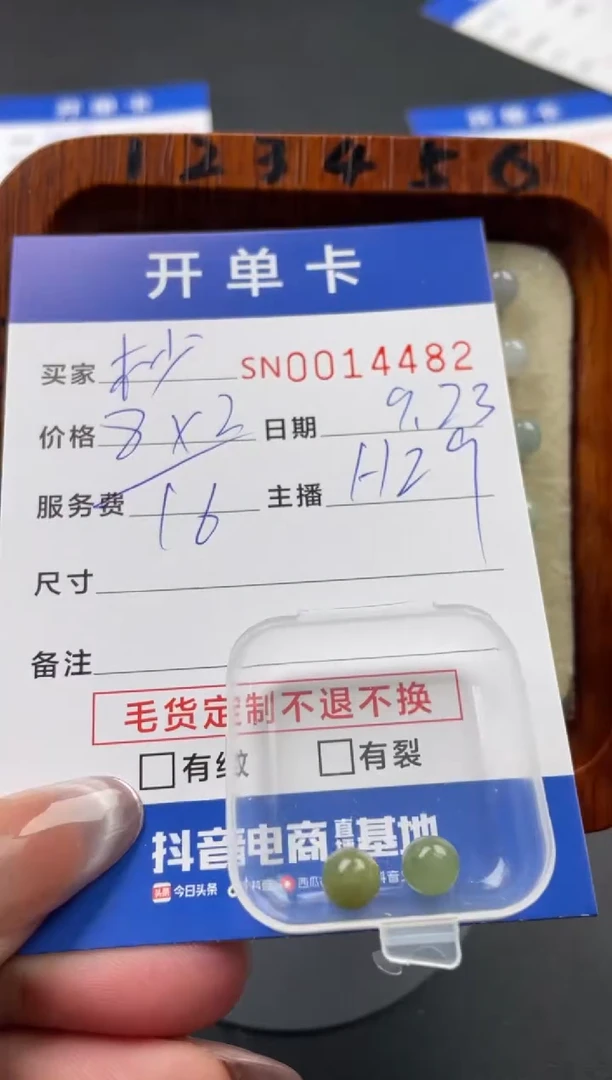 开单卡
开单卡
1 2 3 4 5 6
开单卡
买家 杪 SN0014482
价格 8×2 日期 9.23
服务费 16 主播 H29
尺寸
备注
毛货定制不退不换
□有纹 □有裂
抖音电商直播基地
头条 今日头条 抖音 西瓜 抖音